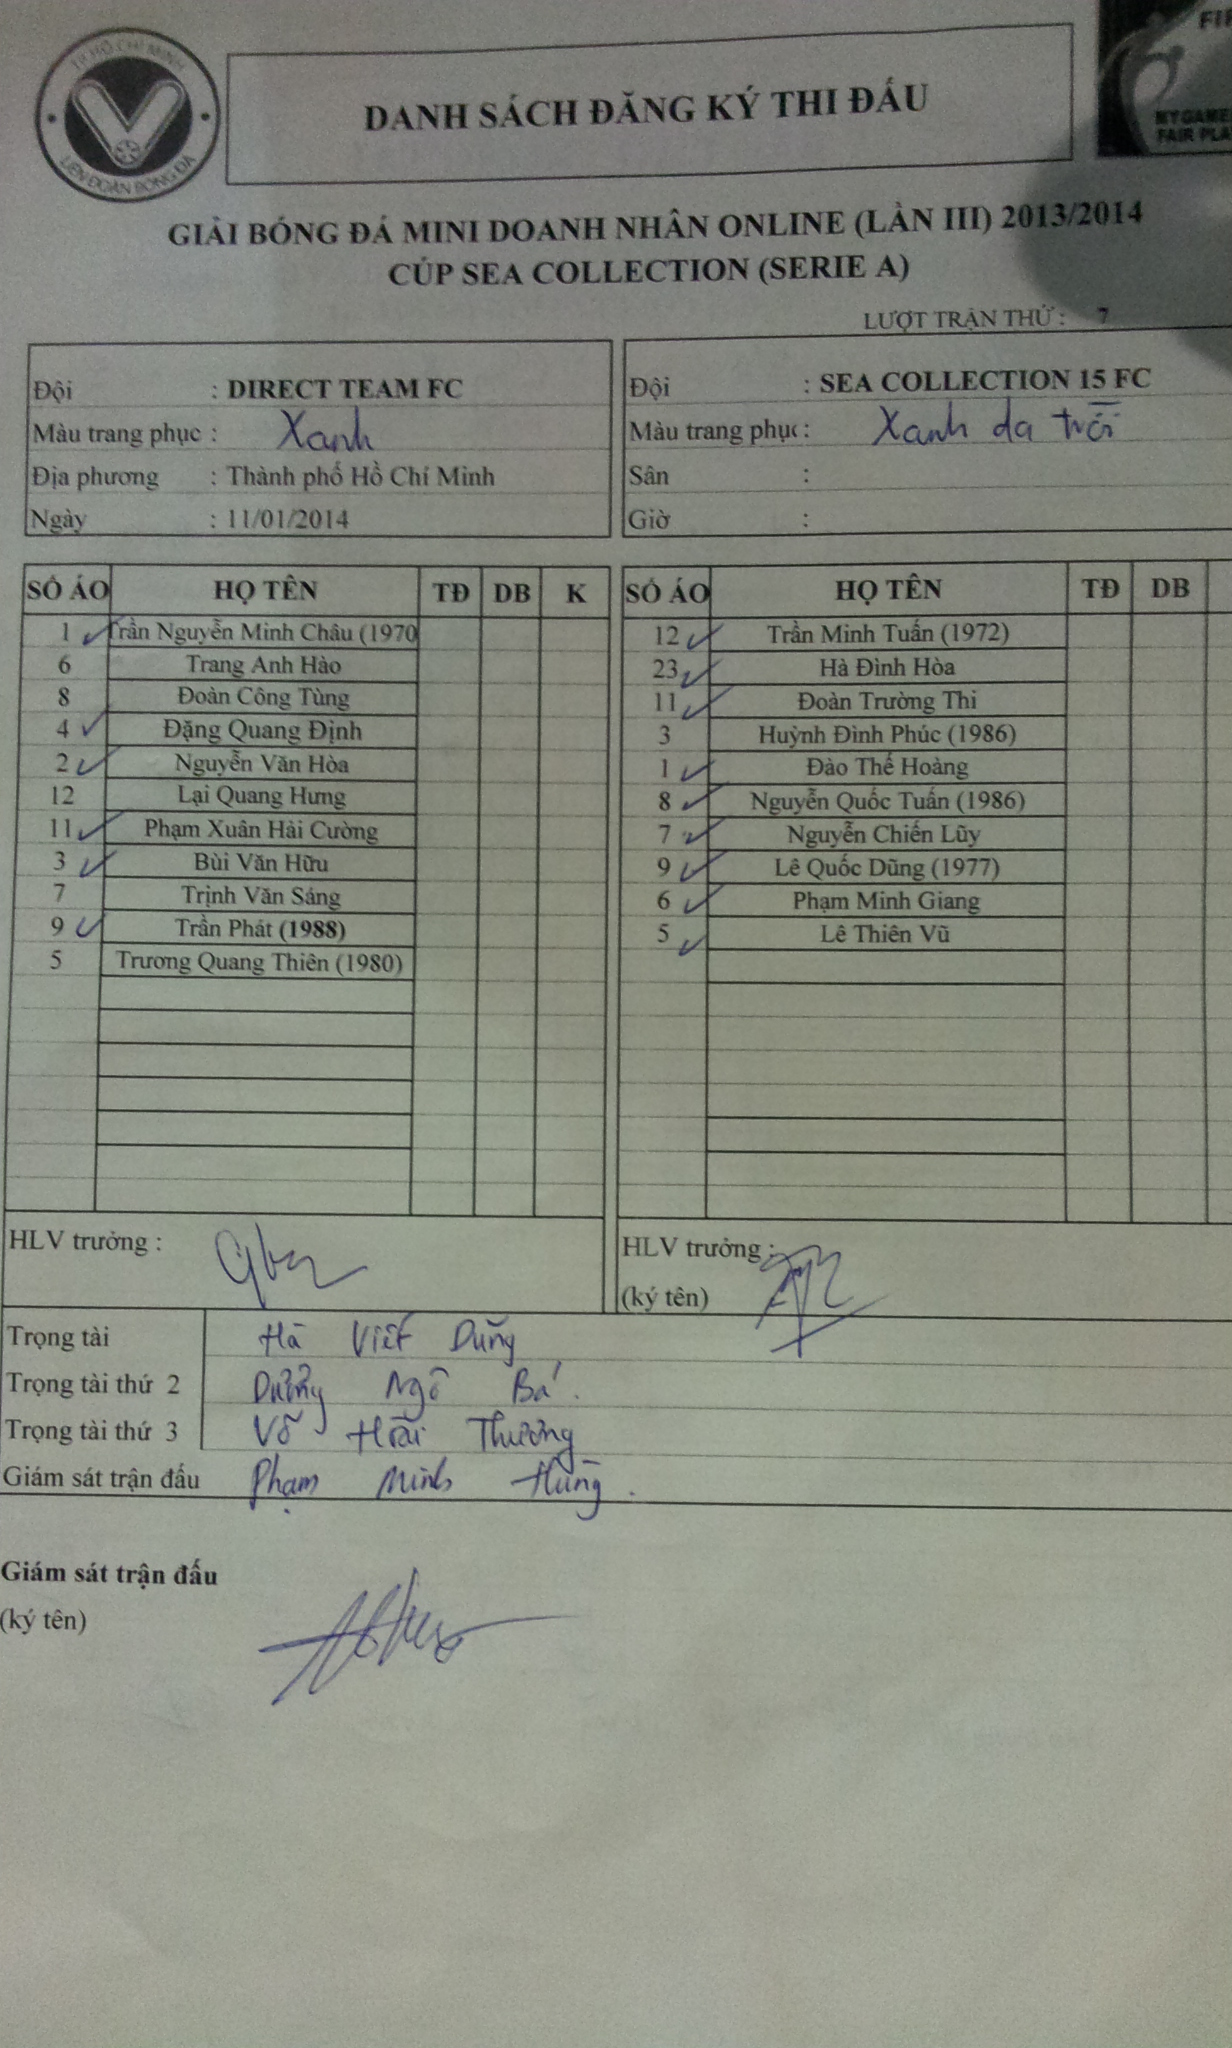 TP HỒ CHÍ MINH
LIÊN ĐOÀN BÓNG ĐÁ
DANH SÁCH ĐĂNG KÝ THI ĐẤU
MY GAME
FAIR PLA
GIẢI BÓNG ĐÁ MINI DOANH NHÂN ONLINE (LẦN III) 2013/2014
CÚP SEA COLLECTION (SERIE A)
LƯỢT TRẬN THỨ : 7
Đội : DIRECT TEAM FC
Màu trang phục : Xanh
Địa phương : Thành phố Hồ Chí Minh
Ngày : 11/01/2014
Đội : SEA COLLECTION 15 FC
Màu trang phục : Xanh da trời
Sân :
Giờ :
SỐ ÁO HỌ TÊN TĐ DB K
1 Trần Nguyễn Minh Châu (1970
6 Trang Anh Hào
8 Đoàn Công Tùng
4 Đặng Quang Định
2 Nguyễn Văn Hòa
12 Lại Quang Hưng
11 Phạm Xuân Hải Cường
3 Bùi Văn Hữu
7 Trịnh Văn Sáng
9 Trần Phát (1988)
5 Trương Quang Thiên (1980)
SỐ ÁO HỌ TÊN TĐ DB
12 Trần Minh Tuấn (1972)
23 Hà Đình Hòa
11 Đoàn Trường Thi
3 Huỳnh Đình Phúc (1986)
1 Đào Thế Hoàng
8 Nguyễn Quốc Tuấn (1986)
7 Nguyễn Chiến Lũy
9 Lê Quốc Dũng (1977)
6 Phạm Minh Giang
5 Lê Thiên Vũ
HLV trưởng :
HLV trưởng :
(ký tên)
Trọng tài Hà Viết Dũng
Trọng tài thứ 2 Dương Ngô Bá
Trọng tài thứ 3 Võ Hoài Thương
Giám sát trận đấu Phạm Minh Hùng .
Giám sát trận đấu
(ký tên)